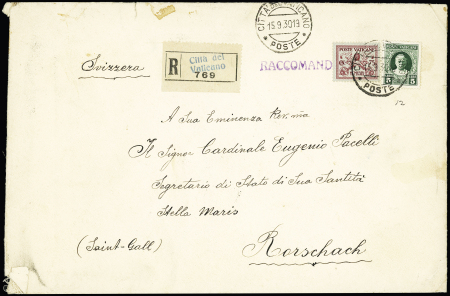 CITTÀ DEL VATICANO
15.9.30 13
* POSTE *
Svizzera
R
Città del
Vaticano
769
RACCOMAND
POSTE VATICANE
POSTE VATICANE
5 5
POSTE *
12
A Sua Eminenza Rev.ma
Il Signor Cardinale Eugenio Pacelli
Segretario di Stato di Sua Santità
Stella Maris
(Saint-Gall) Rorschach